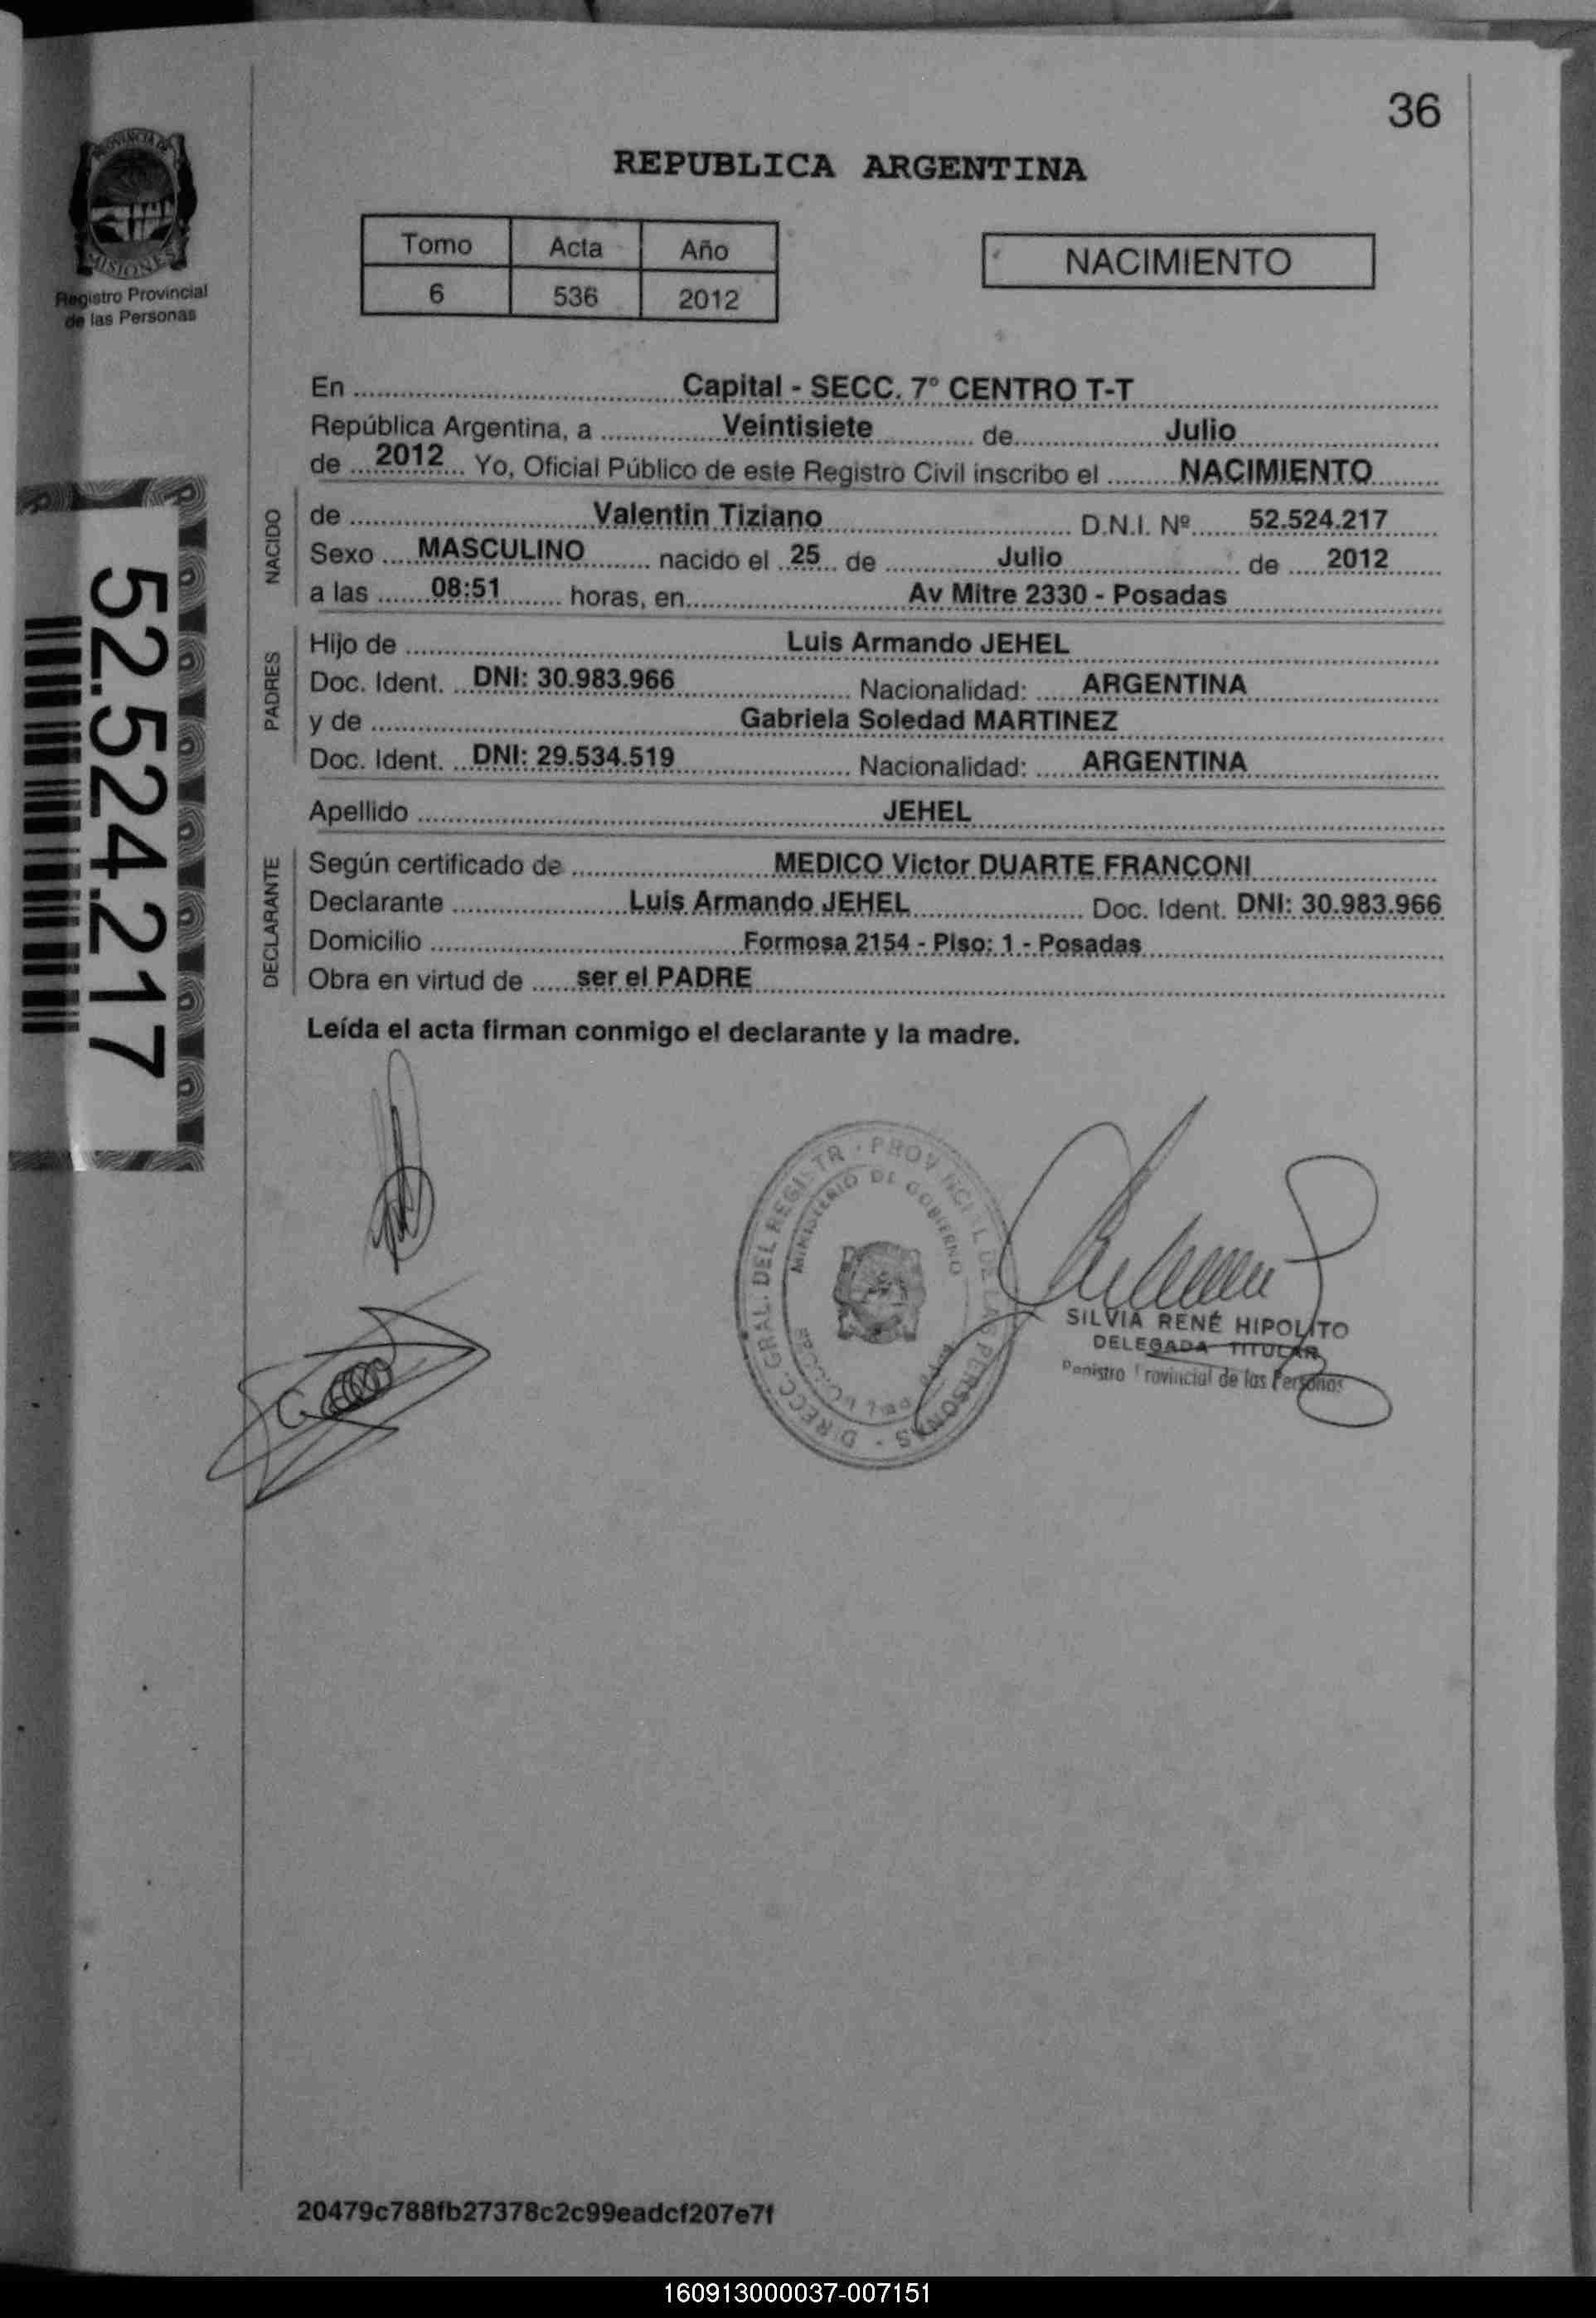 36
PROVINCIA DE
MISIONES
Registro Provincial
de las Personas
REPUBLICA ARGENTINA
Tomo Acta Año
6 536 2012
NACIMIENTO
En Capital - SECC. 7° CENTRO T-T
República Argentina, a Veintisiete de Julio
de 2012 Yo, Oficial Público de este Registro Civil inscribo el NACIMIENTO
NACIDO
de Valentin Tiziano D.N.I. Nº 52.524.217
Sexo MASCULINO nacido el 25 de Julio de 2012
a las 08:51 horas, en Av Mitre 2330 - Posadas
PADRES
Hijo de Luis Armando JEHEL
Doc. Ident. DNI: 30.983.966 Nacionalidad: ARGENTINA
y de Gabriela Soledad MARTINEZ
Doc. Ident. DNI: 29.534.519 Nacionalidad: ARGENTINA
Apellido JEHEL
DECLARANTE
Según certificado de MEDICO Victor DUARTE FRANCONI
Declarante Luis Armando JEHEL Doc. Ident. DNI: 30.983.966
Domicilio Formosa 2154 - Piso: 1 - Posadas
Obra en virtud de ser el PADRE
Leída el acta firman conmigo el declarante y la madre.
52.524.217
DIRECC. GRAL. DEL REGISTR. PROVINCIAL DE LAS PERSONAS
MINISTERIO DE GOBIERNO
SILVIA RENÉ HIPOLITO
DELEGADA TITULAR
Registro Provincial de las Personas
20479c788fb27378c2c99eadcf207e7f
160913000037-007151